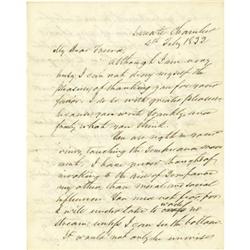 Senate Chamber
2d Feby 1832
My Dear Friend,
Although I am very
busy I can not deny myself the
pleasure of thanking you for your
favor. I do so with greater pleasure
because you write frankly, and
fully, what you think.
You are right in your
views, touching the Temperance move-
ment. I have never thought of
invoking to the aid of Temperance
any other, than moral and social
influence. You need not fear for
I will undertake to
unless I can see the bottom
It would not only be unwise